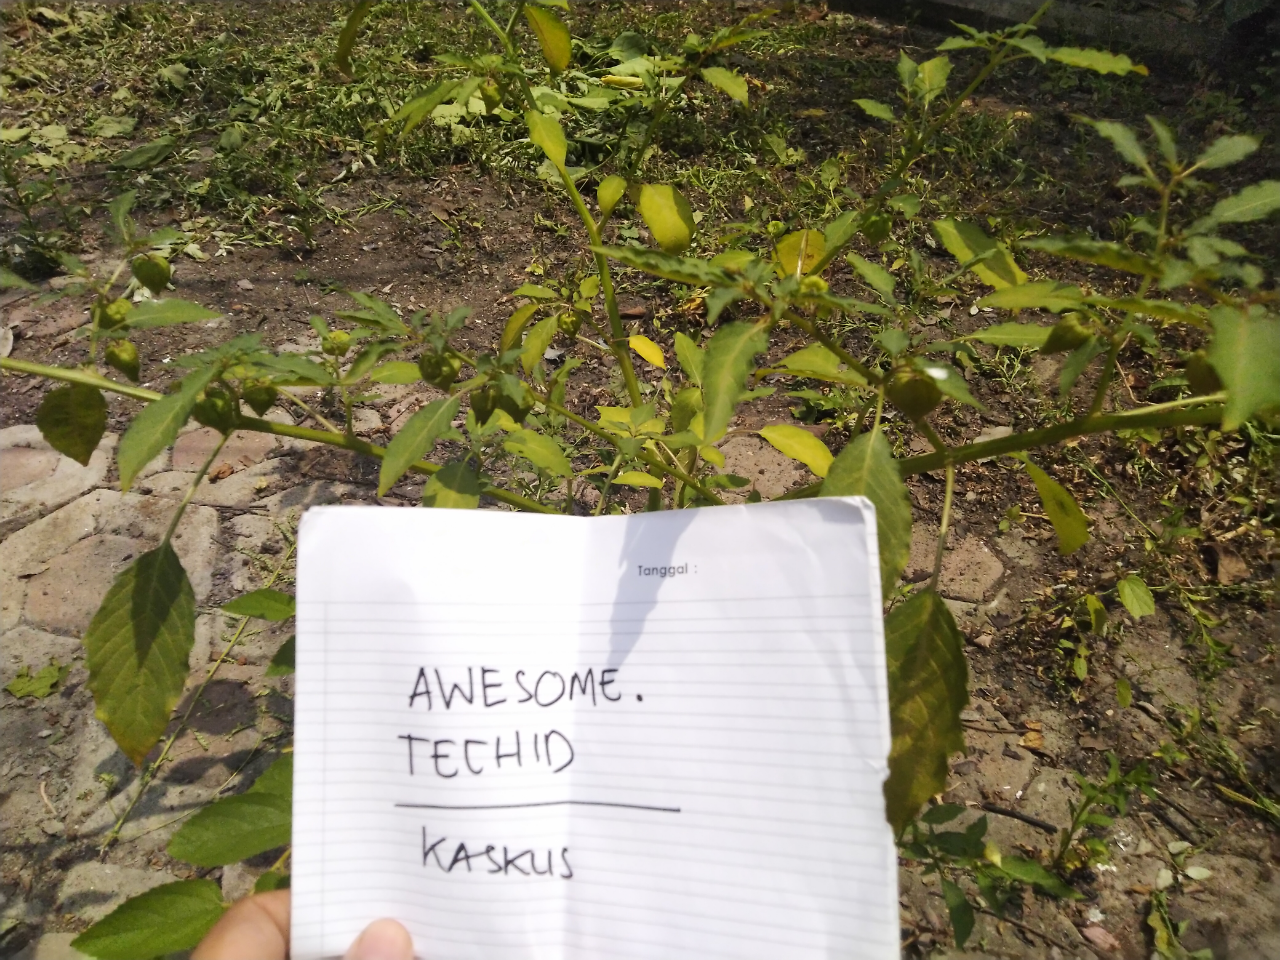 Tanggal :
AWESOME.
TECHID
KASKUS